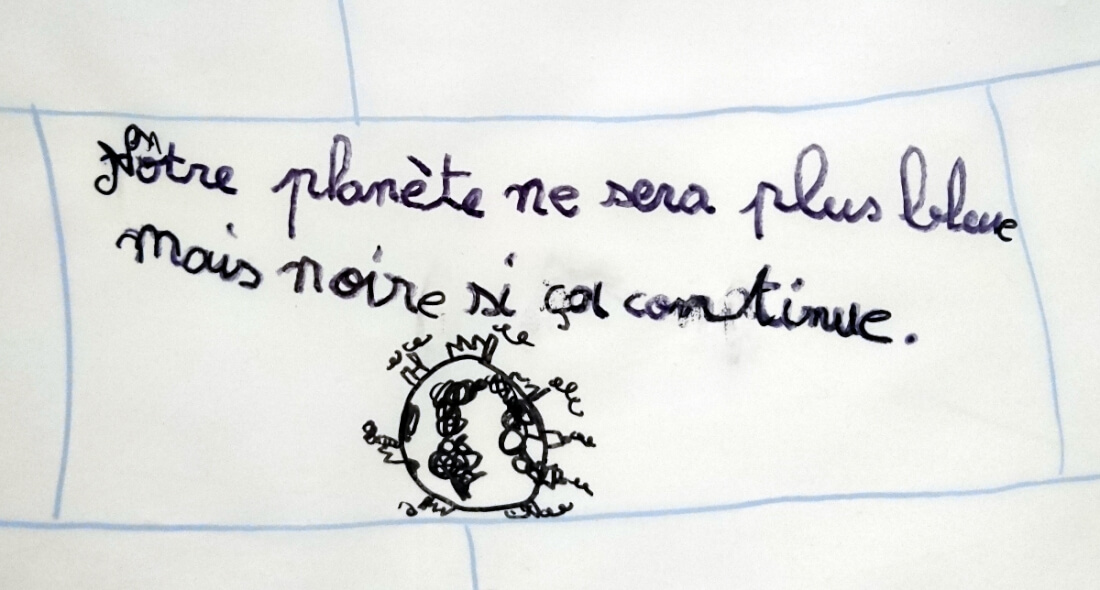 Nôtre planète ne sera plus bleue
mais noire si ça continue.